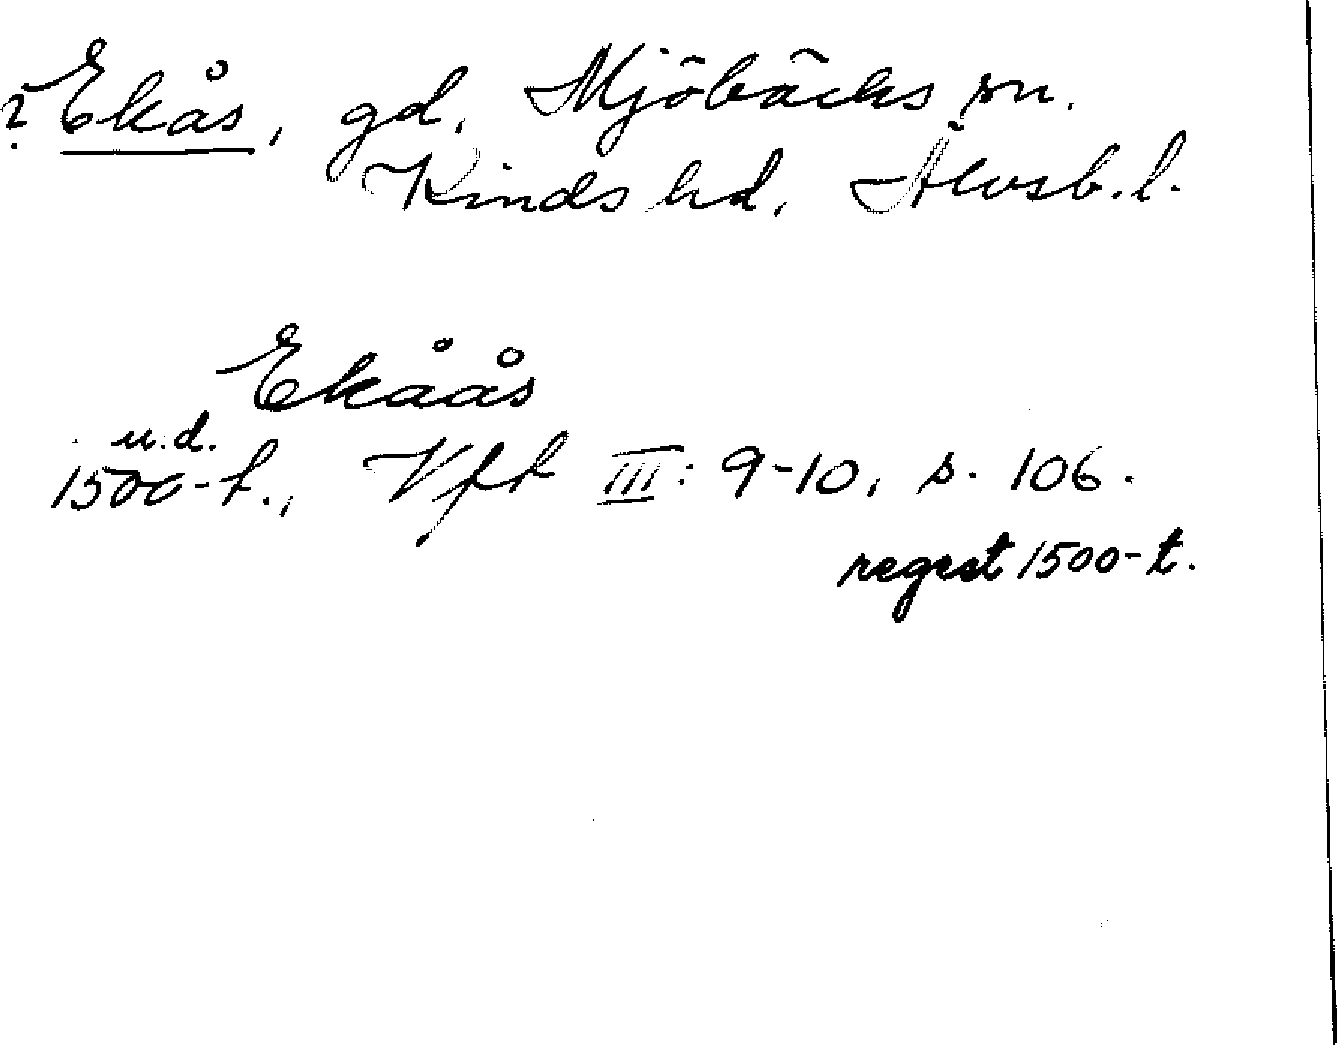 ? Ekås, gd, Mjöbäcks sn.
Kinds hd, Älvsb. l.
Ekåås
u.d.
1500-t., Vft III: 9-10, s. 106.
regest 1500-t.